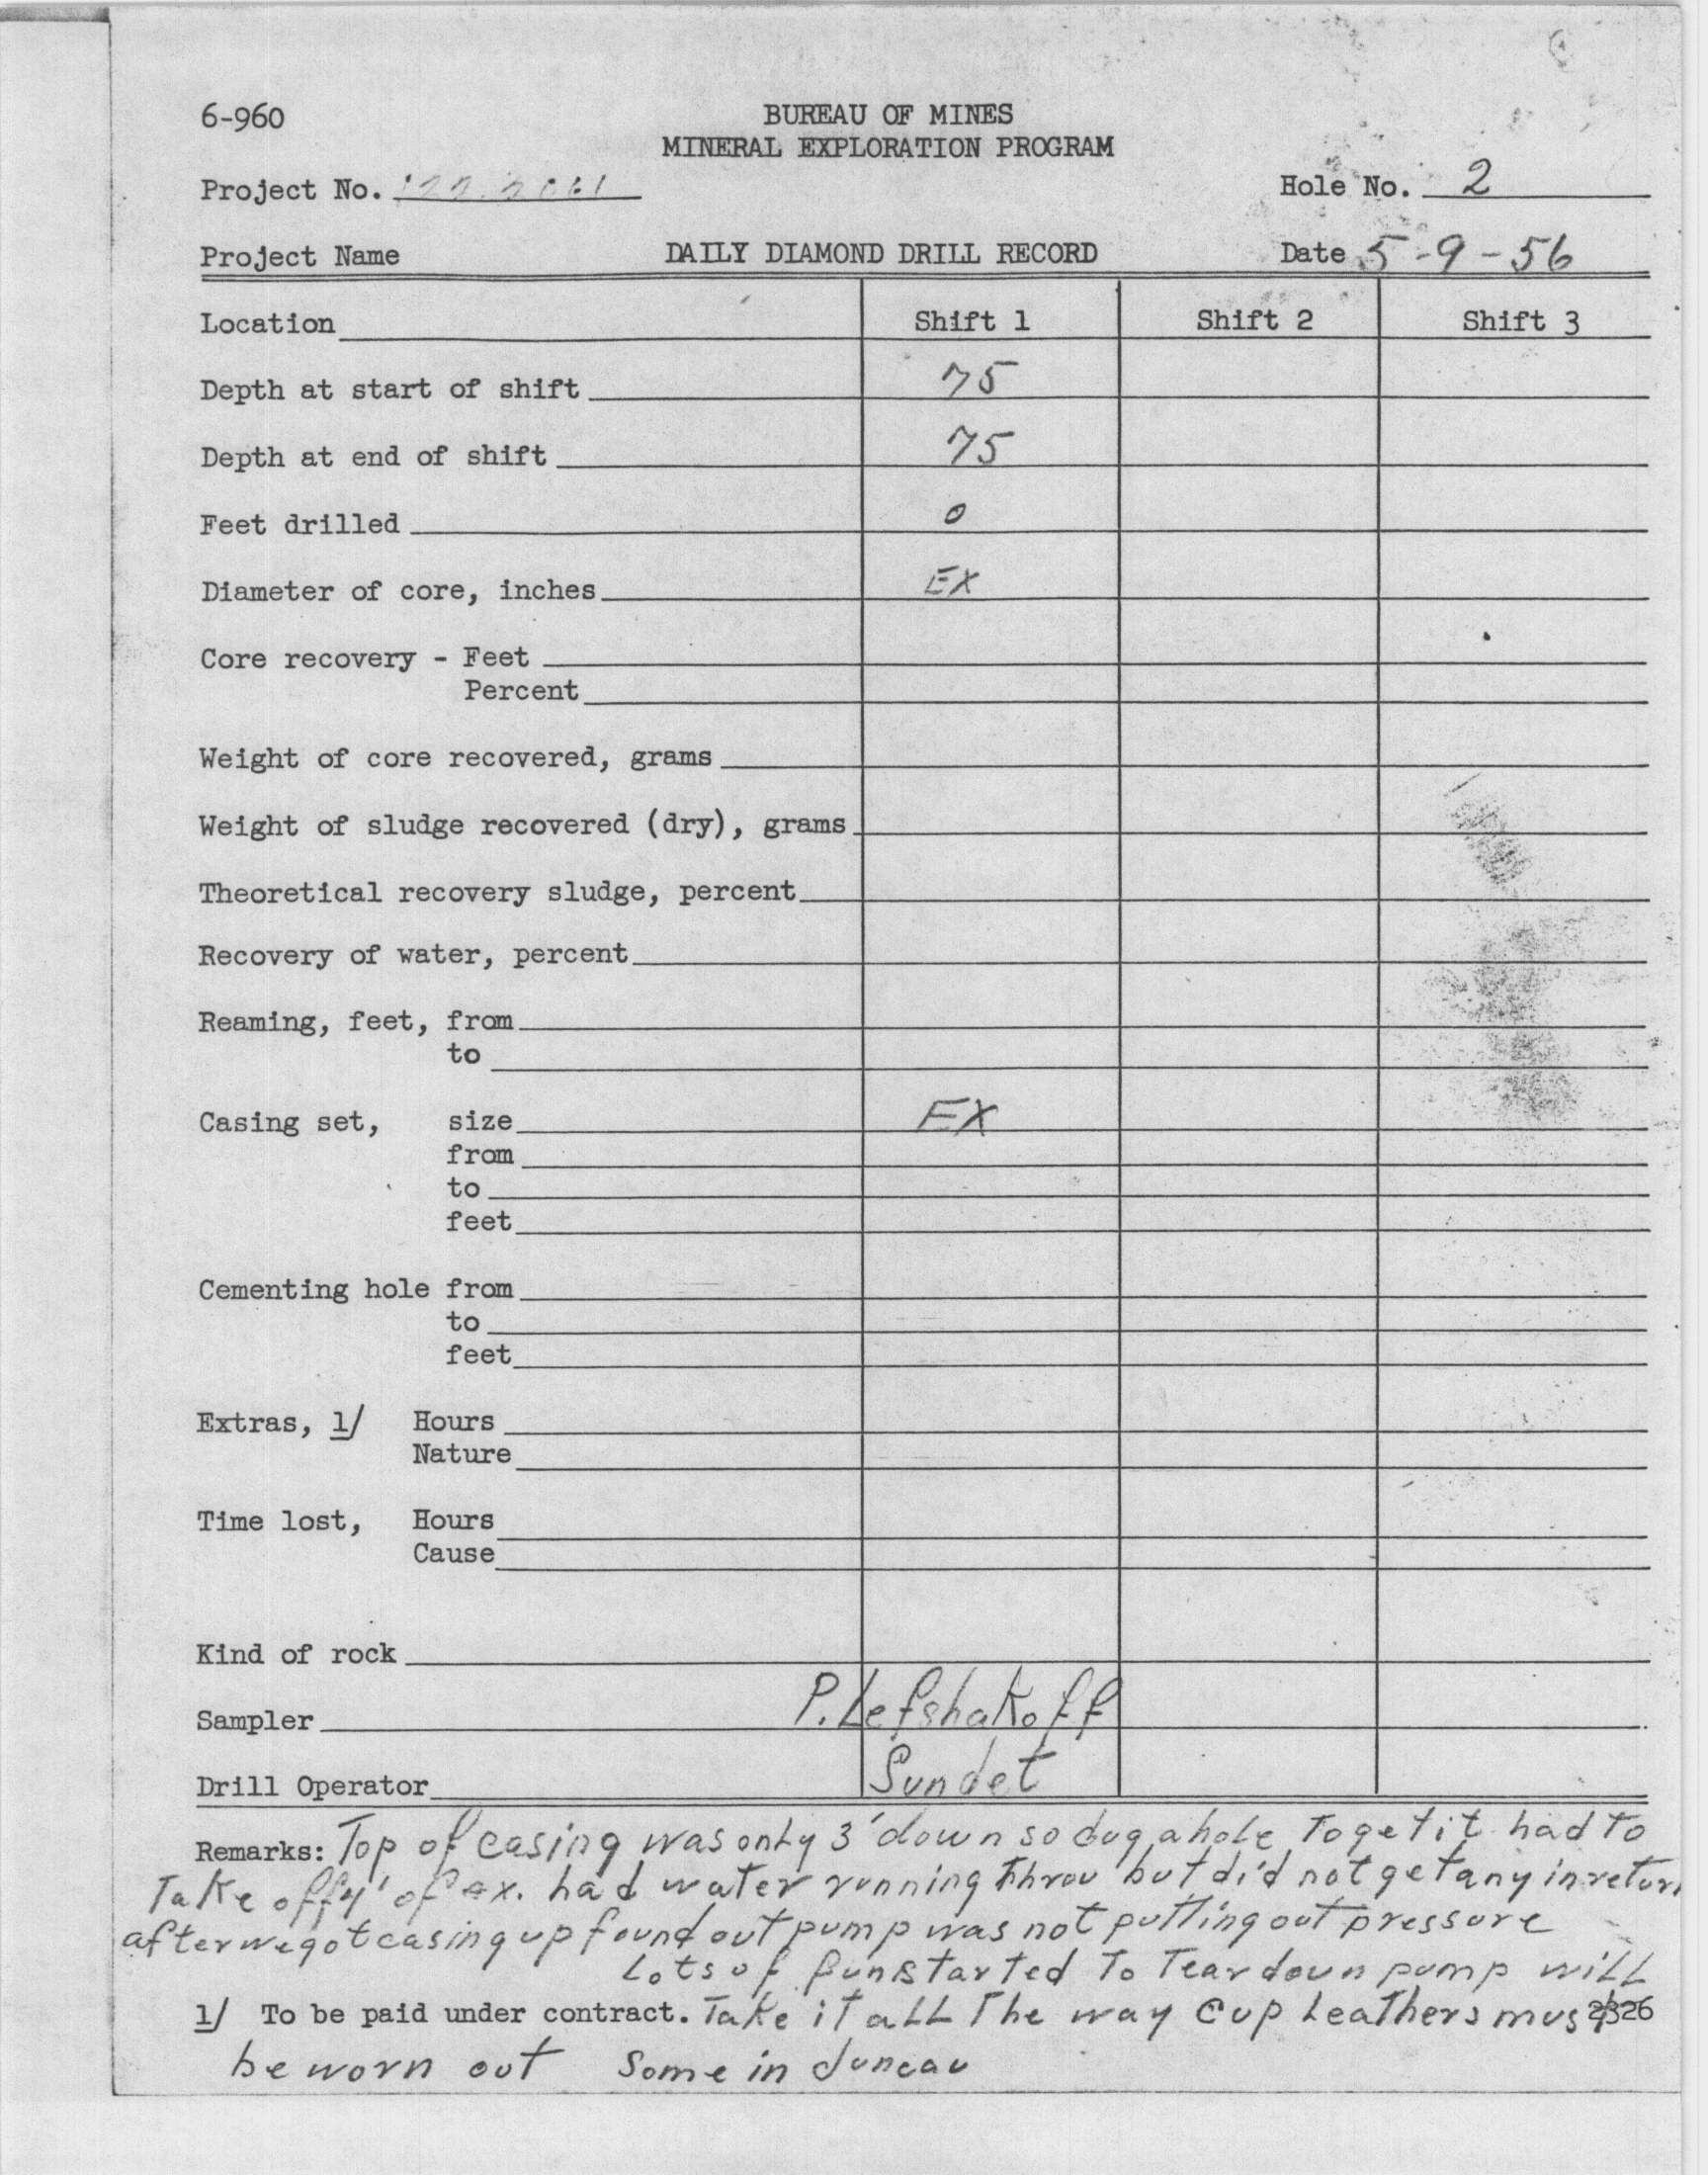 6-960 BUREAU OF MINES
MINERAL EXPLORATION PROGRAM
Project No. Hole No. 2
Project Name DAILY DIAMOND DRILL RECORD Date 5-9-56
Location Shift 1 Shift 2 Shift 3
Depth at start of shift 75
Depth at end of shift 75
Feet drilled 0
Diameter of core, inches EX
Core recovery - Feet
Percent
Weight of core recovered, grams
Weight of sludge recovered (dry), grams
Theoretical recovery sludge, percent
Recovery of water, percent
Reaming, feet, from
to
Casing set, size EX
from
to
feet
Cementing hole from
to
feet
Extras, 1/ Hours
Nature
Time lost, Hours
Cause
Kind of rock
Sampler P. Lefshakoff
Drill Operator Sundet
Remarks: Top of casing was only 3' down so dug a hole To get it had To
Take off 4' of ex. had water running Throu but did not get any in return
after we got casing up found out pump was not putting out pressure
Lots of fun started To Tear down pump will
1/ To be paid under contract. Take it aLL The way Cup Leathers must 2326
be worn out Some in Juneau